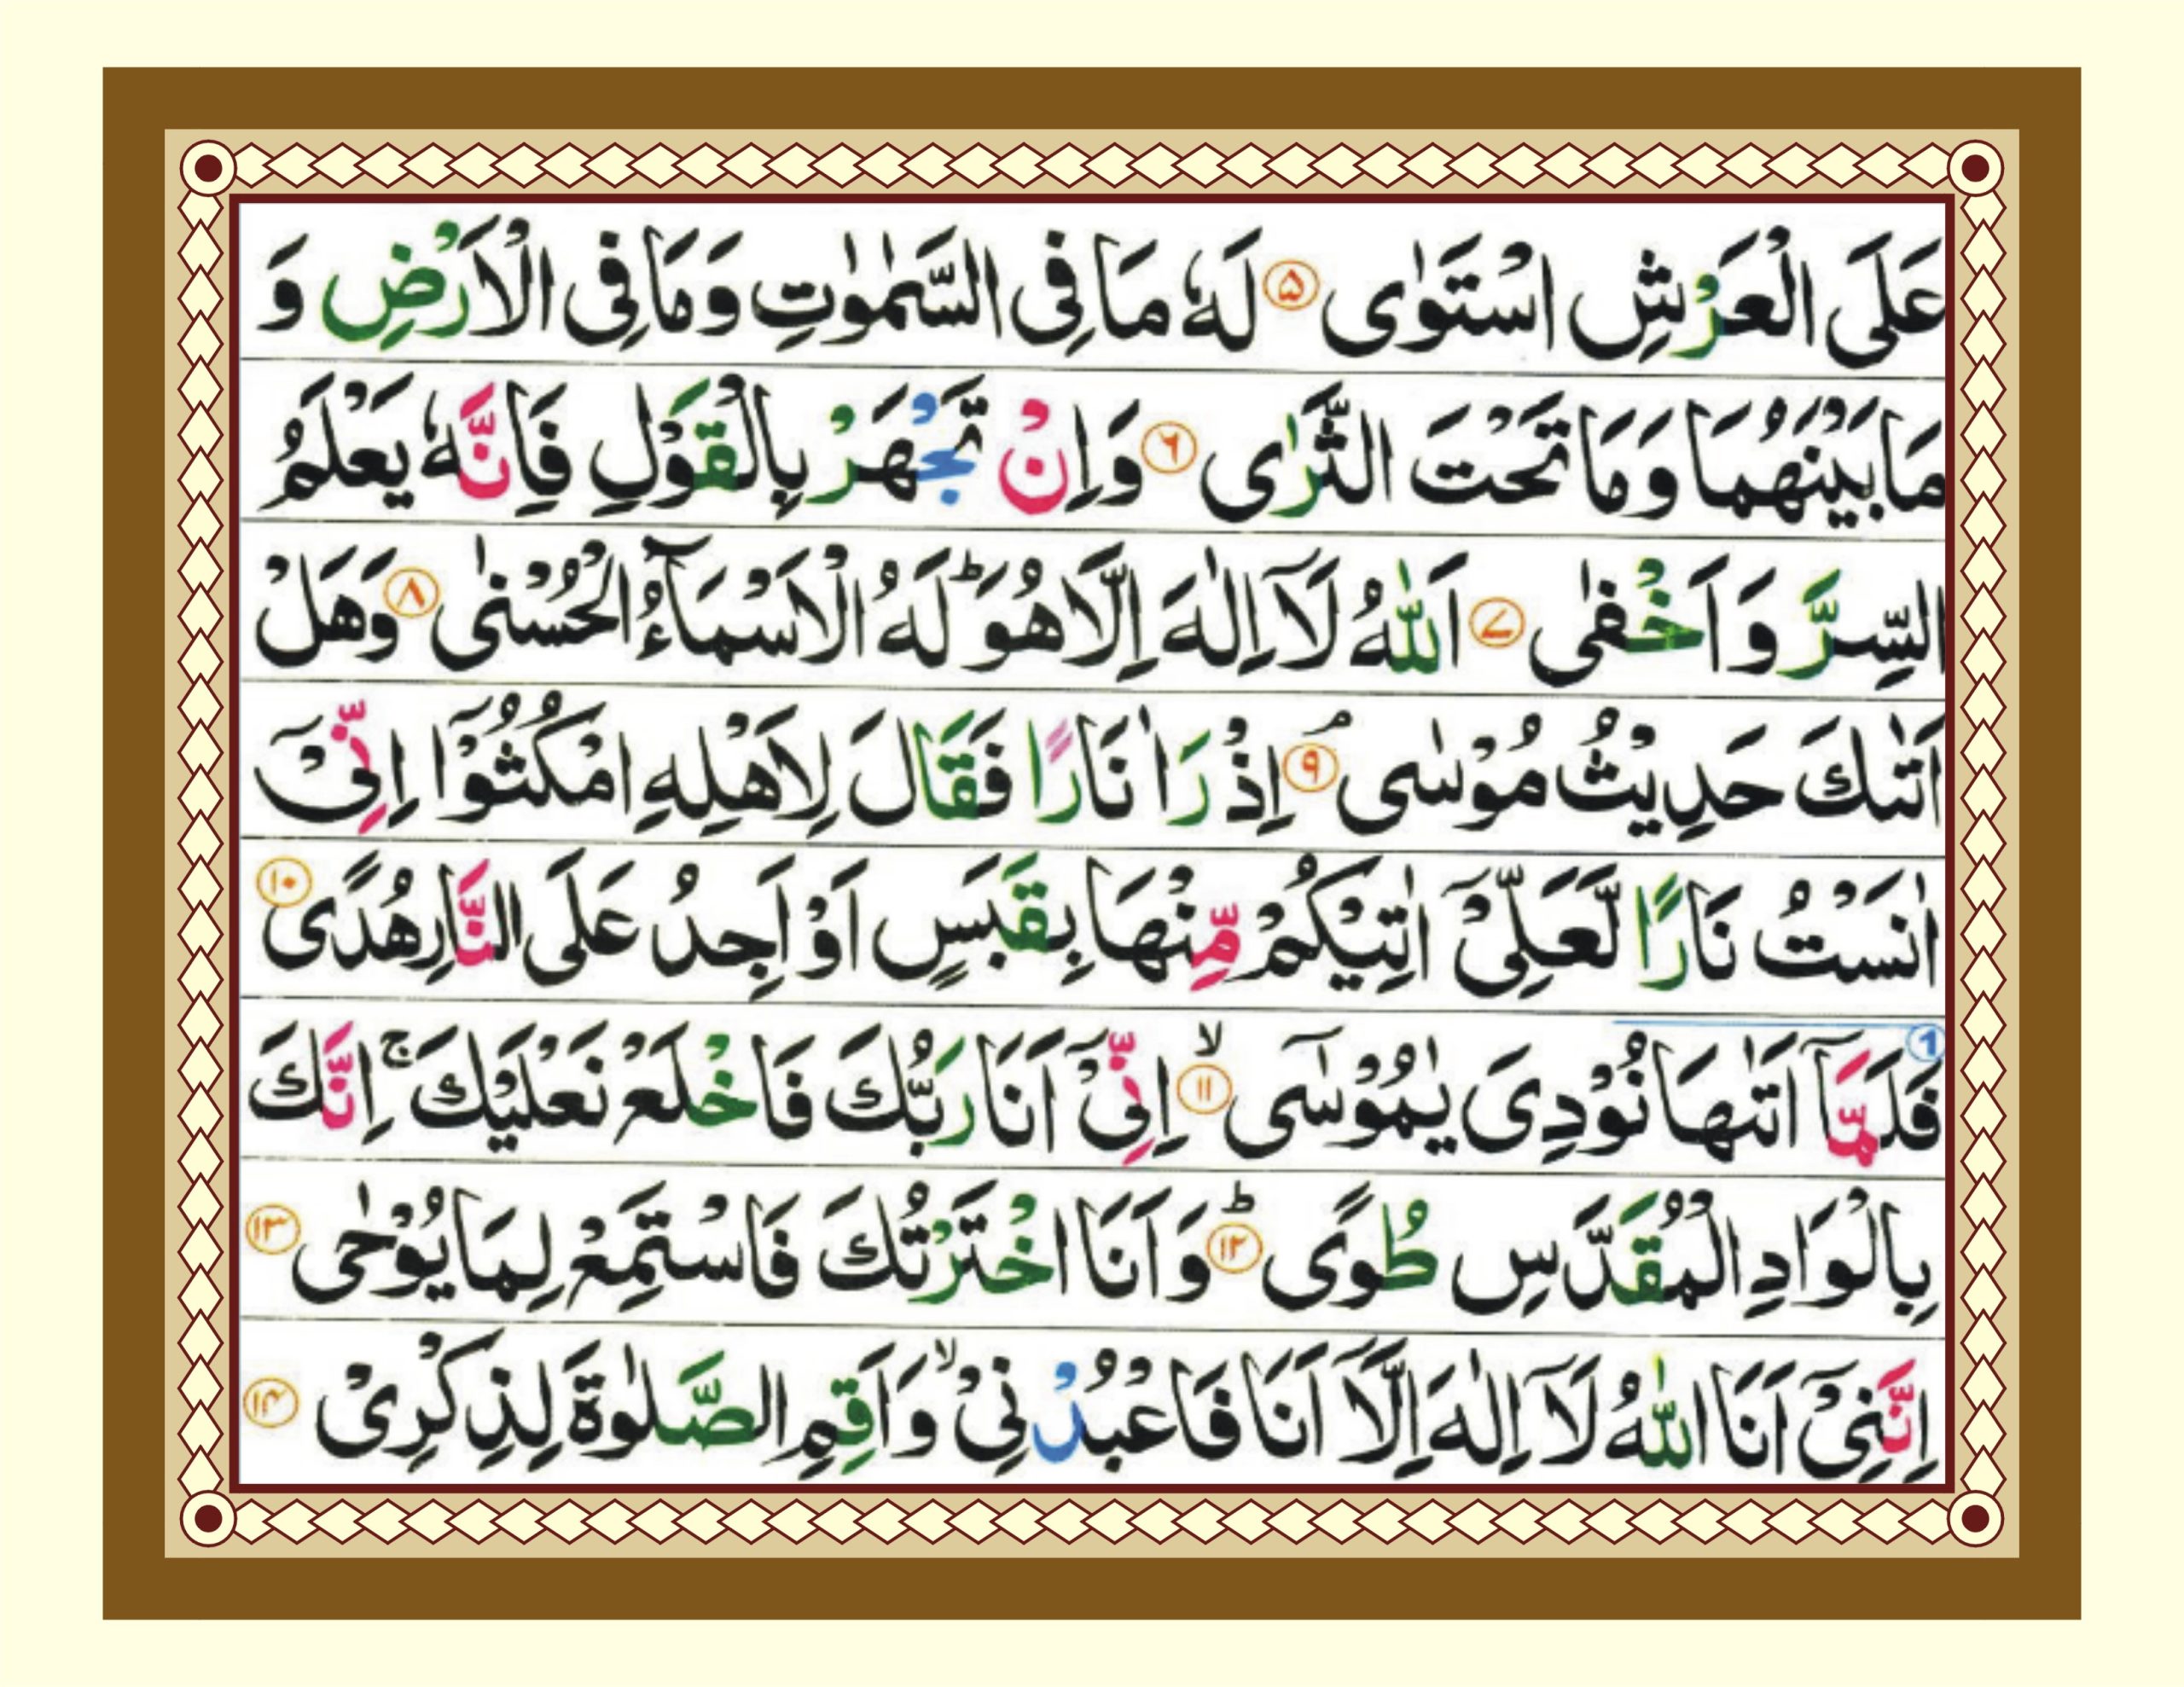 عَلَى الْعَرْشِ اسْتَوٰى ۵ لَهٗ مَا فِى السَّمٰوٰتِ وَمَا فِى الْاَرْضِ وَ
مَا بَيْنَهُمَا وَمَا تَحْتَ الثَّرٰى ۶ وَاِنْ تَجْهَرْ بِالْقَوْلِ فَاِنَّهٗ يَعْلَمُ
السِّرَّ وَاَخْفٰى ۷ اَللّٰهُ لَآ اِلٰهَ اِلَّا هُوَ ؕ لَهُ الْاَسْمَآءُ الْحُسْنٰى ۸ وَهَلْ
اَتٰىكَ حَدِيْثُ مُوْسٰى ۘ ۹ اِذْ رَاٰ نَارًا فَقَالَ لِاَهْلِهِ امْكُثُوْۤا اِنِّىْۤ
اٰنَسْتُ نَارًا لَّعَلِّىْۤ اٰتِيْكُمْ مِّنْهَا بِقَبَسٍ اَوْ اَجِدُ عَلَى النَّارِ هُدًى ۱۰
فَلَمَّاۤ اَتٰىهَا نُوْدِىَ يٰمُوْسٰى ۙ ۱۱ اِنِّىْۤ اَنَا رَبُّكَ فَاخْلَعْ نَعْلَيْكَ ۚ اِنَّكَ
بِالْوَادِ الْمُقَدَّسِ طُوًى ؕ ۱۲ وَاَنَا اخْتَرْتُكَ فَاسْتَمِعْ لِمَا يُوْحٰى ۱۳
اِنَّنِىْۤ اَنَا اللّٰهُ لَآ اِلٰهَ اِلَّاۤ اَنَا فَاعْبُدْنِىْ ۙ وَاَقِمِ الصَّلٰوةَ لِذِكْرِىْ ۱۴